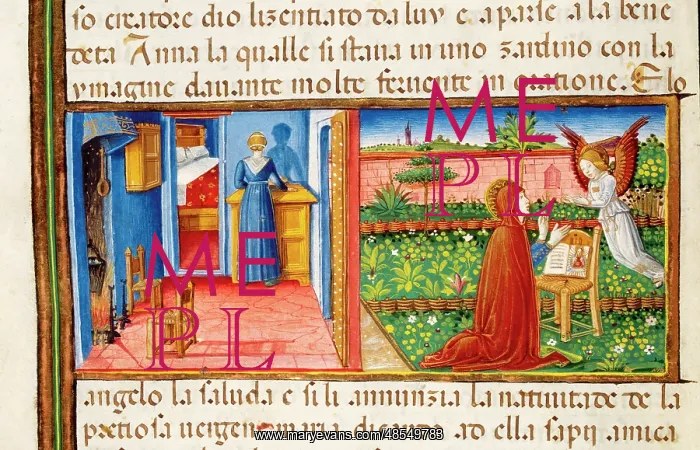 so creatore dio lizentiato da luy e aparse a la bene
deta Anna la qualle si staua in uno zardino con la
ymagine dauante molte feruente in oratione. E lo
ME
PL
ME
PL
angelo la saluda e si li annunzia la natiuitade de la
pretiosa uergen maria dicando ad ella sapij amica
www.maryevans.com/48549783